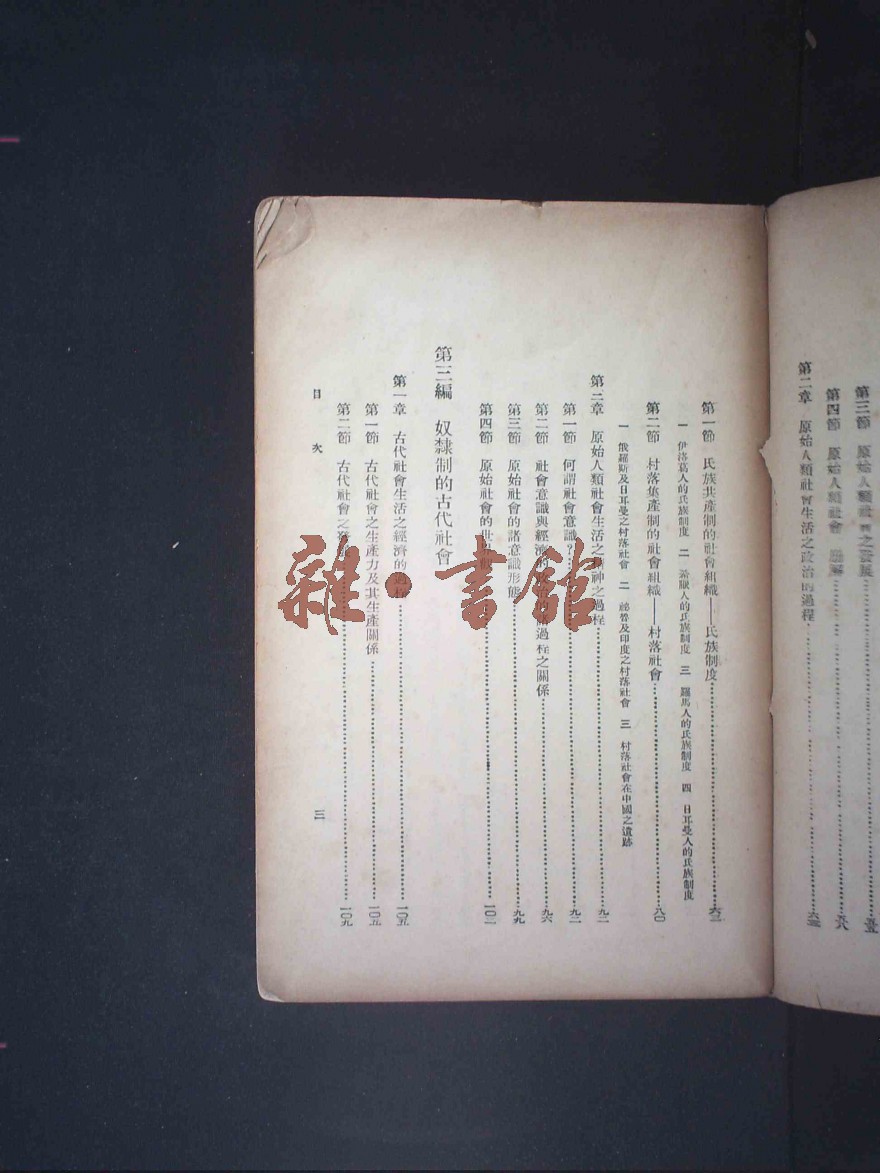 第三節 原始人類社會之發展……五五
第四節 原始人類社會 ……五八
第二章 原始人類社會生活之政治的過程……六三
第一節 氏族共產制的社會組織——氏族制度……六三
一 伊洛葛人的氏族制度 二 希臘人的氏族制度 三 羅馬人的氏族制度 四 日耳曼人的氏族制度
第二節 村落集產制的社會組織——村落社會……八〇
一 俄羅斯及日耳曼之村落社會 二 祕魯及印度之村落社會 三 村落社會在中國之遺跡
第三章 原始人類社會生活之精神之過程……九二
第一節 何謂社會意識?……九二
第二節 社會意識與經濟的 過程之關係……九六
第三節 原始社會的諸意識形態……九九
第四節 原始社會的世界觀……一〇二
第三編 奴隸制的古代社會
第一章 古代社會生活之經濟的過程……一〇五
第一節 古代社會之生產力及其生產關係……一〇五
第二節 古代社會之 ……一〇九
目 次 三
雜·書館